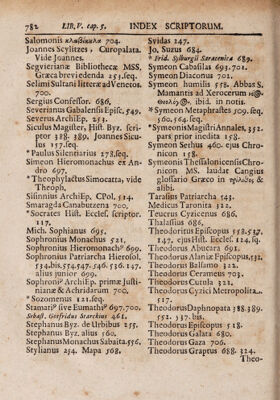 782 LIB. V. cap. 5. INDEX SCRIPTORUM.
Salomonis κλαβίκυλα 704.
Joannes Scylitzes, Curopalata.
Vide Joannes.
Segvierianæ Bibliothecæ MSS.
Græca brevi edenda 253. seq.
Selimi Sultani litteræ ad Venetos.
700.
Sergius Confessor. 686.
Severianus Gabalensis Episc. 549.
Severus Archi Ep. 253.
Siculus Magister, Hist. Byz. scri-
ptor 388. 389. Joannes Sicu-
lus 157. seq.
* Paulus Silentiarius 278. seq.
Simeon Hieromonachus ex An-
dro 697.
* Theophylactus Simocatta, vide
Theoph.
Sisinnius ArchiEp. CPol. 514.
Smaragda Canabutzena 700.
*Socrates Hist. Eccles. scriptor.
117.
Mich. Sophianus 695.
Sophronius Monachus 521.
Sophronius Hieromonach⁹ 699.
Sophronius Patriarcha Hierosol.
534. bis, 554. 547. 546. 536. 147.
alius junior 699.
Sophroni⁹ Archi Ep. primæ Justi-
nianæ & Achridarum 700.
* Sozomenus 121. seq.
Stamati⁹ sive Eumathi⁹ 697. 700.
Sebast. Gosfridus Starckius 461.
Stephanus Byz. de Urbibus 255.
Stephanus Byz. alius 560.
Stephanus Monachus Sabaita. 556,
Stylianus 254. Mapa 568.
Svidas 247.
Jo. Suzus 684.
* Frid. Sylburgii Saracenica 689.
Symeon Cabasilas 693. 701.
Symeon Diaconus 702.
Symeon humilis 558. Abbas S.
Mamantis ad Xerocercum νέος
Θεολόγος. ibid. in notis.
* Symeon Metaphrastes 509. seq.
560. 564. seq.
*Symeonis Magistri Annalet. 352.
pars prior inedita 158.
Symeon Serhus 460. ejus Chro-
nicon 158.
Symeonis Thessalonicensis Chro-
nicon MS. laudat Cangius
glossario Græco in &
alibi.
Tarasius Patriarcha 541.
Medicus Taronita 322.
Teucrus Cyzicenus 686.
Thalassius 686.
Theodoritus Episcopus 558. 527.
147. ejus Hist. Eccles. 124. sq.
Theodorus Abucara 691.
Theodorus Alaniæ Episcopus, 532.
Theodorus Balsamo 322.
Theodorus Cerameus 703.
Theodorus Cutula 321.
Theodorus Cyzici Metropolita..
517.
Theodorus Daphnopata 388. 389.
552. 387. bis.
Theodorus Episcopus 518.
Theodorus Galata 680.
Theodorus Gaza 706.
Theodorus Graptus 688. 324.
Theo-